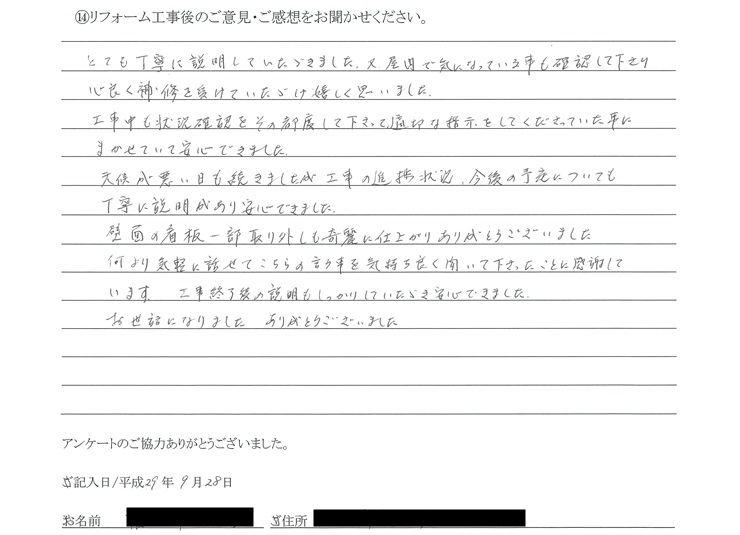 ⑭リフォーム工事後のご意見・ご感想をお聞かせください。
とても丁寧に説明していただきました。又屋内で気になっている事も確認して下さり
心良く補修を受けていただけ嬉しく思いました。
工事中も状況確認をその都度して下さって適切な指示をしてくださっていた事に
まかせていて安心できました。
天候が悪い日も続きましたが工事の進捗状況、今後の予定についても
丁寧に説明があり安心できました。
壁面の看板一部取り外しも奇麗に仕上がりありがとうございました
何より気軽に話せてこちらの言う事を気持ち良く聞いて下さったことに感謝して
います。 工事終了後の説明もしっかりしていただき安心できました。
お世話になりました ありがとうございました
アンケートのご協力ありがとうございました。
ご記入日/平成29年 9月28日
お名前 ご住所